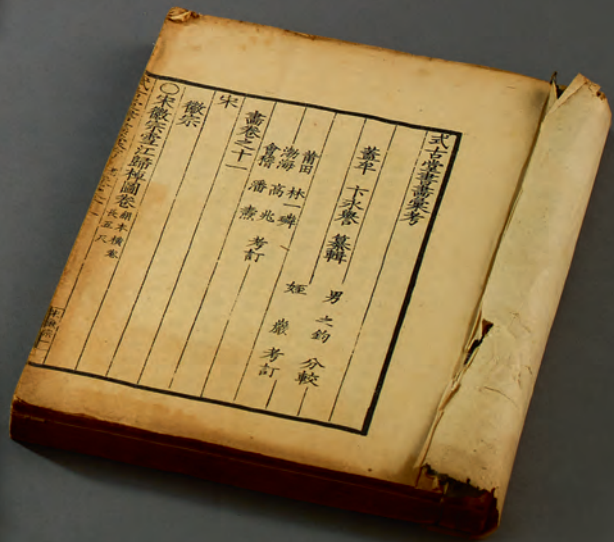 式古堂書畫彙考
蓋牟 卞永譽 纂輯
男 之鈞 分較
姪 巖 考訂
莆田 林一璘
渤海 高兆
會稽 潘燾 考訂
畫卷之十一
宋
徽宗
〇宋徽宗雪江歸棹圖卷 絹本橫卷 長五尺